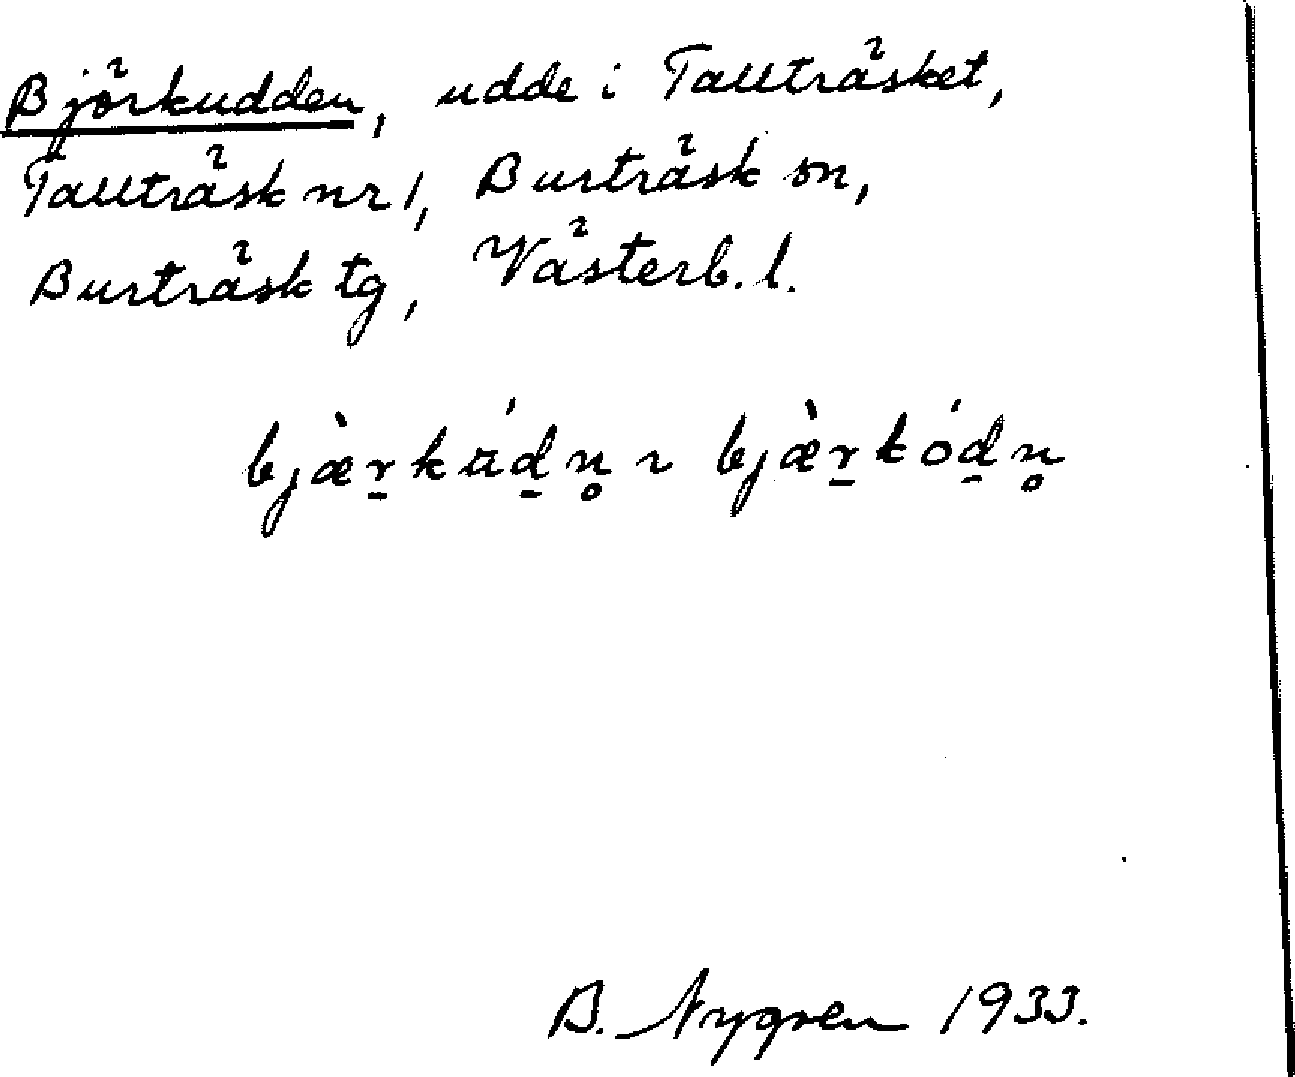 Björkudden, udde i Tallträsket,
Tallträsk nr 1, Burträsk sn,
Burträsk tg, Västerb. l.
bjæ̀r̠kúd̠n̥ ~ bjæ̀r̠kód̠n̥
B. Nygren 1933.